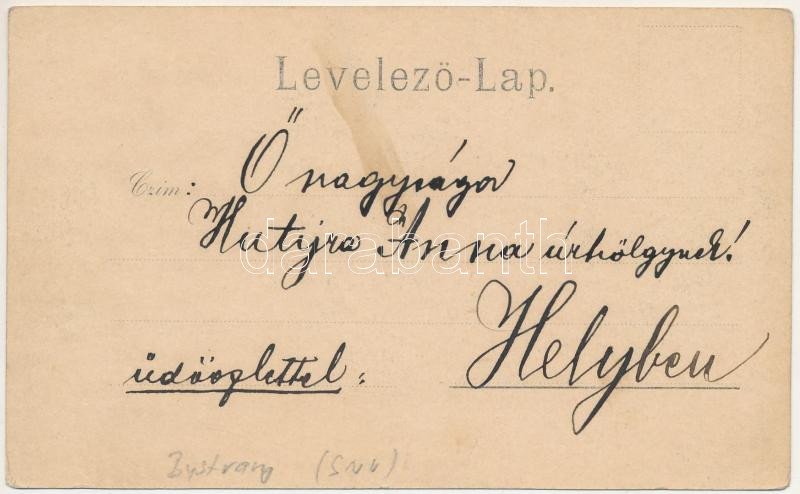 Levelező-Lap.
Czim: Ő nagysága
Hutÿra Anna úrhölgynek!
Helyben
üdvözlettel:
Bystrany (SNV)
darabanth